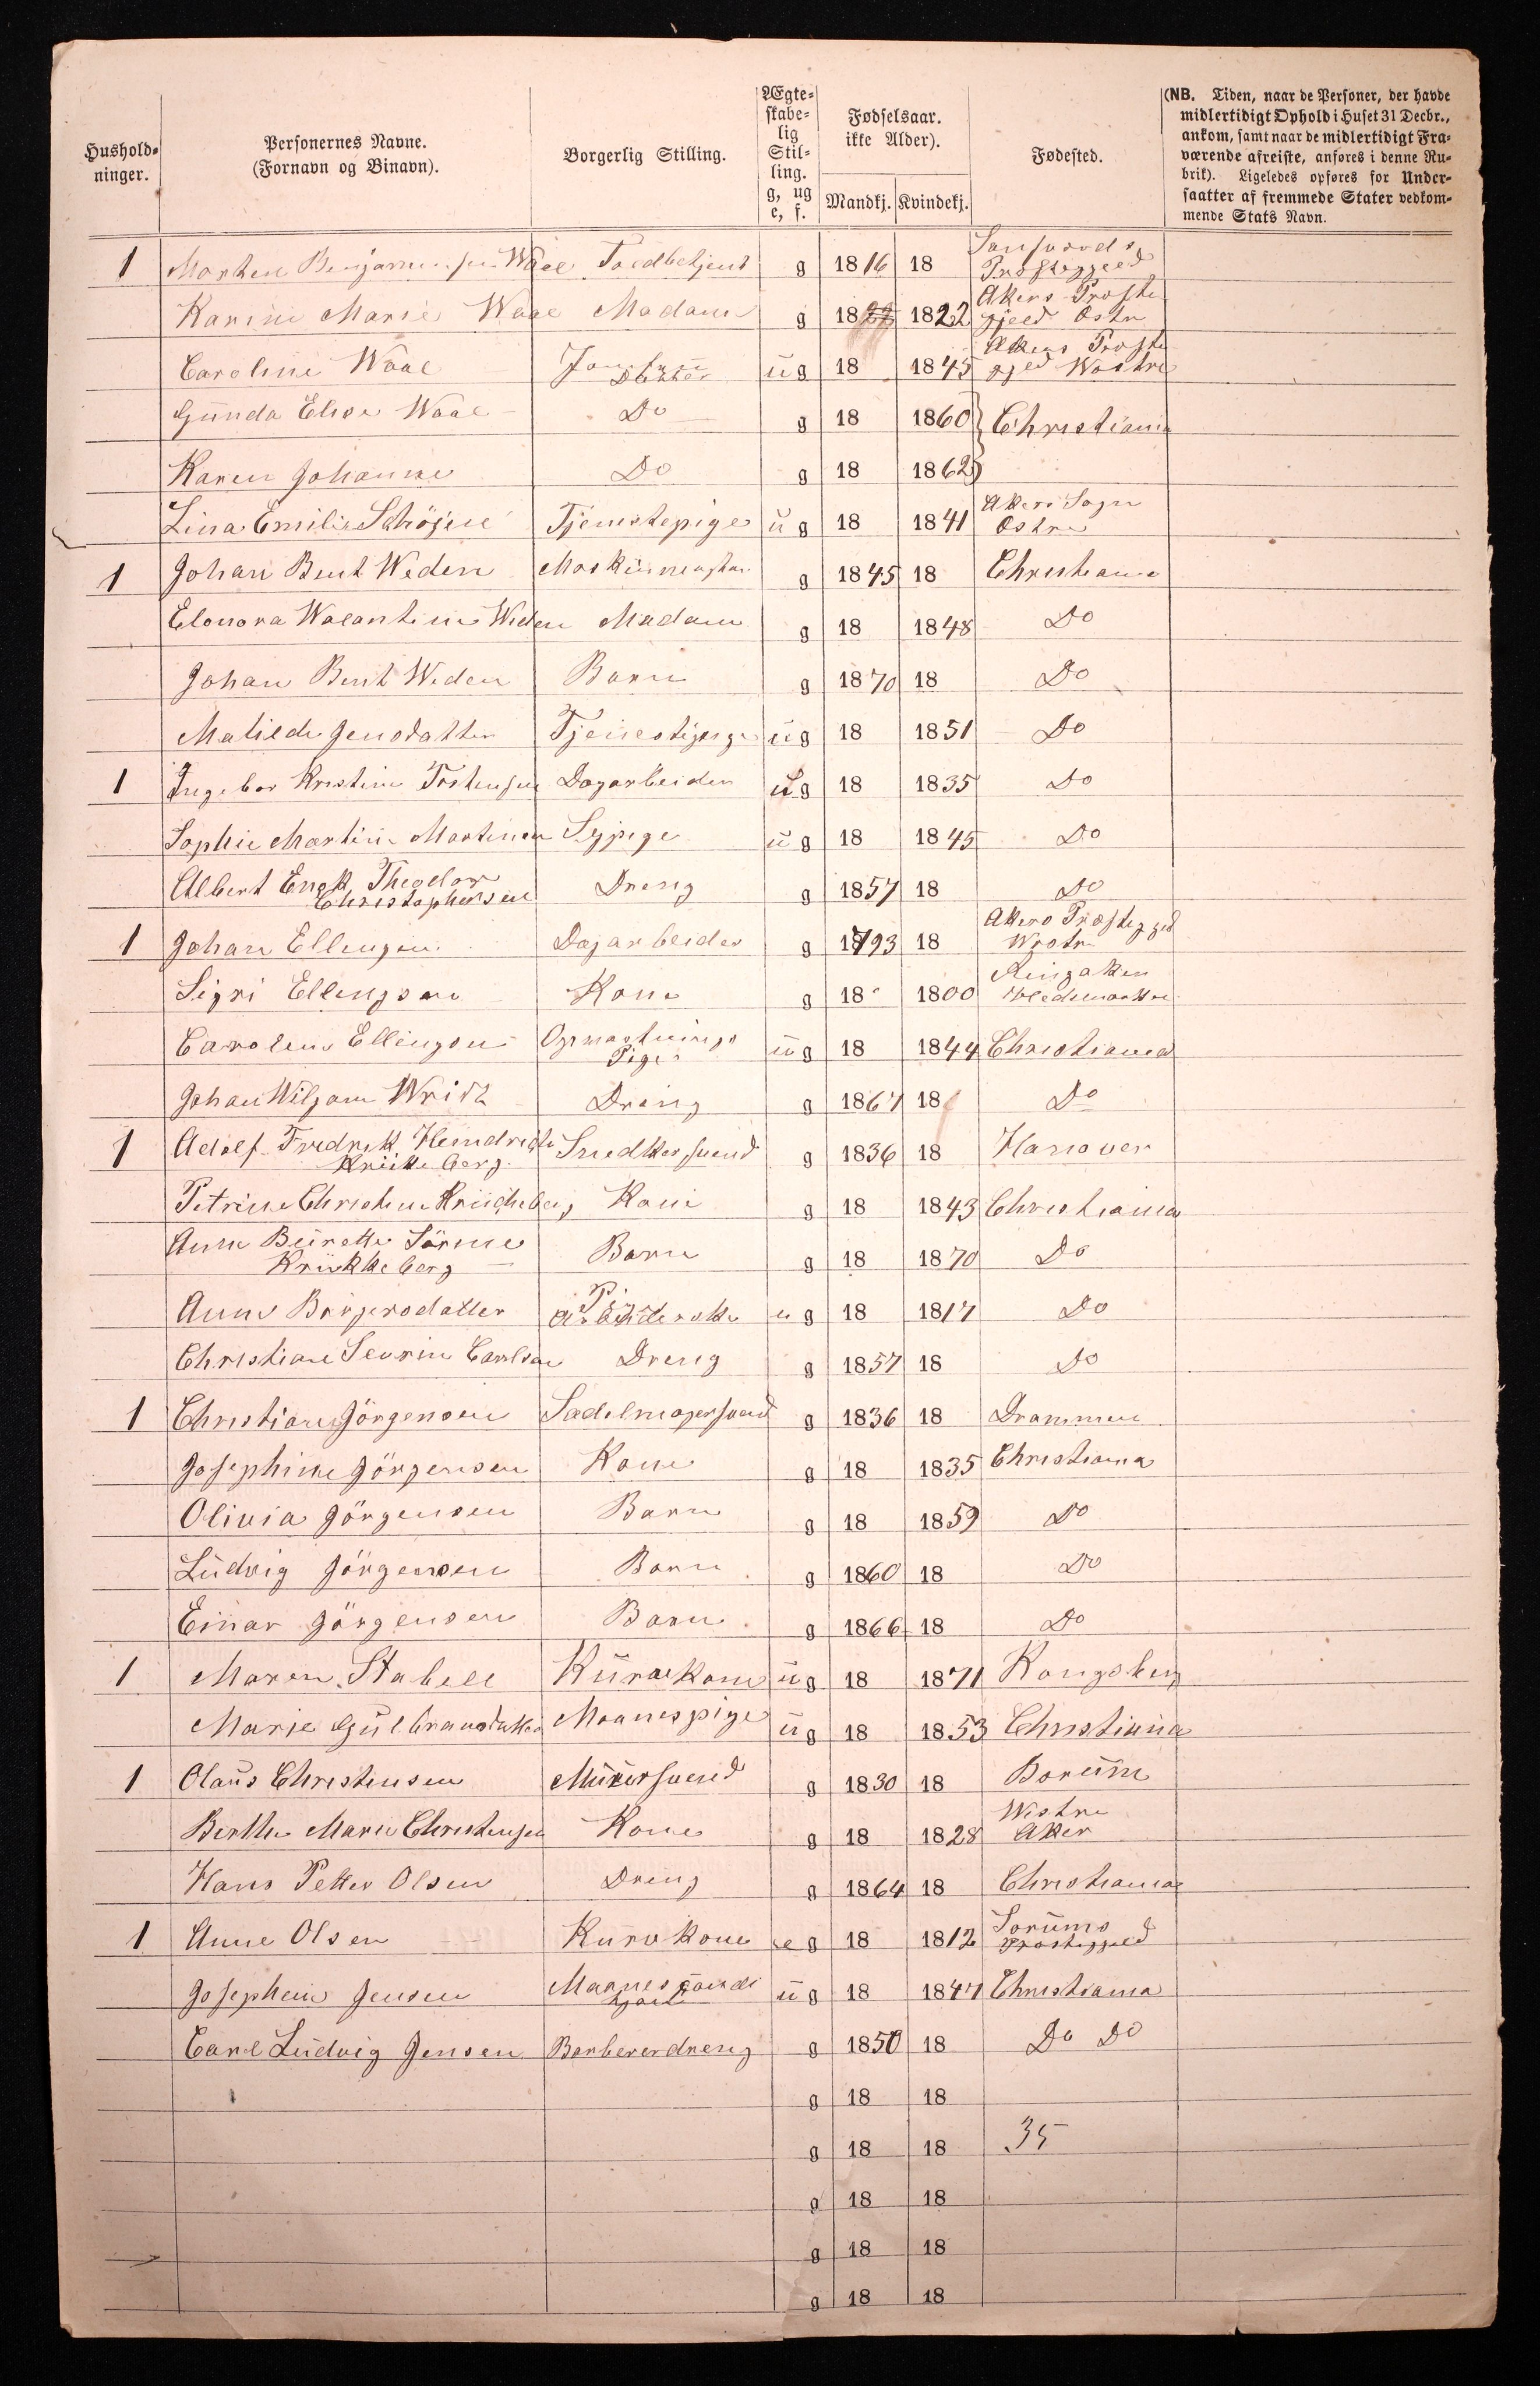 Hushold-
ninger.
Personernes Navne.
(Fornavn og Binavn).
Borgerlig Stilling.
Ægte-
skabe-
lig
Stil-
ling.
g, ug
e, f.
Fødselsaar.
ikke Alder).
Mandkj. Kvindekj.
Fødested.
(NB. Tiden, naar de Personer, der havde
midlertidigt Ophold i Huset 31 Decbr.,
ankom, samt naar de midlertidigt Fra-
værende afreiste, anføres i denne Ru-
brik). Ligeledes opføres for Under-
saatter af fremmede Stater vedkom-
mende Stats Navn.
1 Morten Benjaminsen Waae Toldbetjent g 1816 18 Præstegjeld
Karine Marie Waae Madam g 18 1822 Akers Præste
gjeld Østre
Caroline Waae ug 18 1845 Akers Præste
gjed Westre
Gunda Elise Waae Do g 18 1860 Christiania
Karen Johanne Do g 18 1862
Lina Emilie Tjenstepige ug 18 1841 Akers Sogn
Østre
1 Johan Bent Weden g 1845 18 Christiania
Elonora Walantine Weden Madam g 18 1848 Do
Johan Bent Weden Barn g 1870 18 Do
Matilde Jensdatter Tjenestepige ug 18 1851 Do
1 Ingebor Kristine Dagarbeider ug 18 1835 Do
Sophie Martine Martinsen Sypige ug 18 1845 Do
Albert Theodor
Christophersen Dreng g 1857 18 Do
1 Johan Ellingsen Dagarbeider g 1793 18 Akers Præstegjed
Westre
Sigri Ellingsen Kone g 18 1800 Ringsaker
Hedemarken
Caroline Ellingsen Opvartnings
Pige ug 18 1844 Christiania
Johan Wiljam Dreng g 1867 18 Do
1 Adolf Fredrik Hendrich
Krückeberg Snedkersvend g 1836 18 Hanover
Petrine Christine Krückeberg Kone g 18 1843 Christiania
Anne
Krükkeberg Barn g 18 1870 Do
Anne ug 18 1817 Do
Christian Sevrin Carlsen Dreng g 1857 18 Do
1 Christian Jörgensen Sadelmagersvend g 1836 18 Drammen
Josephine Jörgensen Kone g 18 1835 Christiania
Olivia Jörgensen Barn g 18 1859 Do
Ludvig Jörgensen Barn g 1860 18 Do
Einar Jörgensen Barn g 1866 18 Do
1 Maren Stabell ug 18 1871 Kongsberg
Marie Gulbrandsdatter Maanespige ug 18 1853 Christiania
1 Olaus Christensen Murersvend g 1830 18
Berthe Marie Christensen Kone g 18 1828 Westre
Aker
Hans Petter Olsen Dreng g 1864 18 Christiania
1 Anne Olsen e g 18 1812 Sorums
Præstegjeld
Josephine Jensen ug 18 1847 Christiania
Carl Ludvig Jensen Barbererdreng g 1850 18 Do Do
g 18 18
g 18 18 35
g 18 18
g 18 18
g 18 18